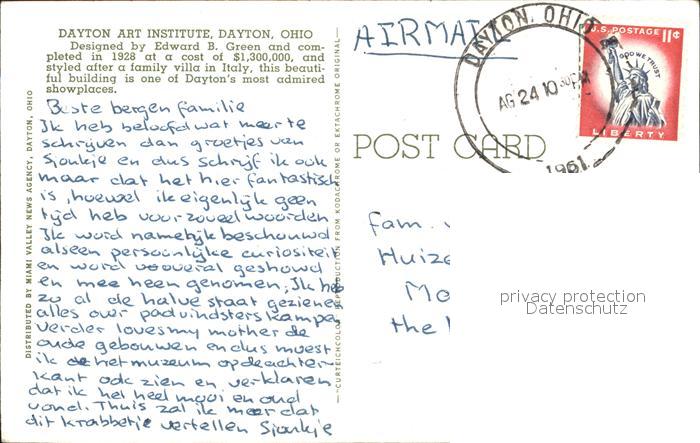 DAYTON ART INSTITUTE, DAYTON, OHIO
Designed by Edward B. Green and com-
pleted in 1928 at a cost of $1,300,000, and
styled after a family villa in Italy, this beauti-
ful building is one of Dayton's most admired
showplaces.
Beste bergen familie
Ik heb beloofd wat meer te
schrijven dan groetjes van
Sjoukje en dus schrijf ik ook
maar dat het hier fantastisch
is, hoewel ik eigenlijk geen
tijd heb voor zoveel woorden
Ik word namelijk beschouwd
als een persoonlijke curiositeit
en word overal geshowd
en mee heen genomen, Ik heb
zo al de halve staat gezien en
alles over padvindsters kampen
verder loves my mother de
oude gebouwen en dus moest
ik het museum op de achter-
kant ook zien en verklaren
dat ik het heel mooi en oud
vond. Thuis zal ik meer dat
dit krabbetje vertellen Sjoukje
DISTRIBUTED BY MIAMI VALLEY NEWS AGENCY, DAYTON, OHIO
"CURTEICHCOLOR" REPRODUCTION FROM KODACHROME OR EKTACHROME ORIGINAL
AIRMAIL
DAYTON, OHIO
AG 24 10 30 PM
1961
U.S. POSTAGE 11¢
IN GOD WE TRUST
LIBERTY
POST CARD
fam. v
Huize
Mo
the
privacy protection
Datenschutz